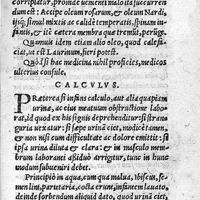 corripiatur, proinde uementi malo ita succurren
dum est: Accipe oleum rosarum, & oleum Nardi,
ijsq́; simul mixtis ac calidè temperatis, spinam in
fantis, & itē cætera membra que tremūt, perūge.
Quamuis idem etiam alio oleo, quod calefa-
ciat, ut est Laurinum, fieri potest.
Quòd si hac medicina nihil proficies, medicos
ulterius consule.
CALCVLVS.
PRæterea si infans calculo, aut alia quapiam
urinæ, ac eius meatuum obstructione labora
rit, id quod ex his signis deprehenditur: si stran
guria uexatur: si sæpe urinā ciet, modicè tamen,
& non sine difficultate ac dolore emittit: si ip-
sa urina diluta & clara, & si in masculo mem-
brum laboranti assiduò arrigitur, tunc in hunc
modum subuenire debet.
Principiò in aqua, cum qua maluæ, ibiscus, se-
men lini, parietaria, cocta erunt, infantem lauato,
deinde sorbendum aliquid dato, quod urinā ciet,